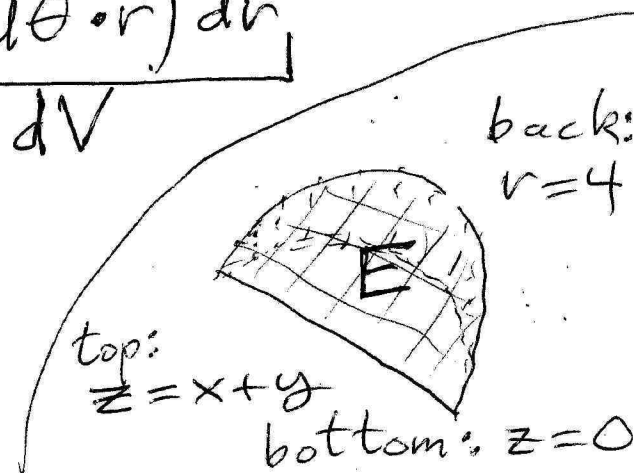 dθ • r) dr
dV
back:
r = 4
E
top:
z = x + y
bottom: z = 0